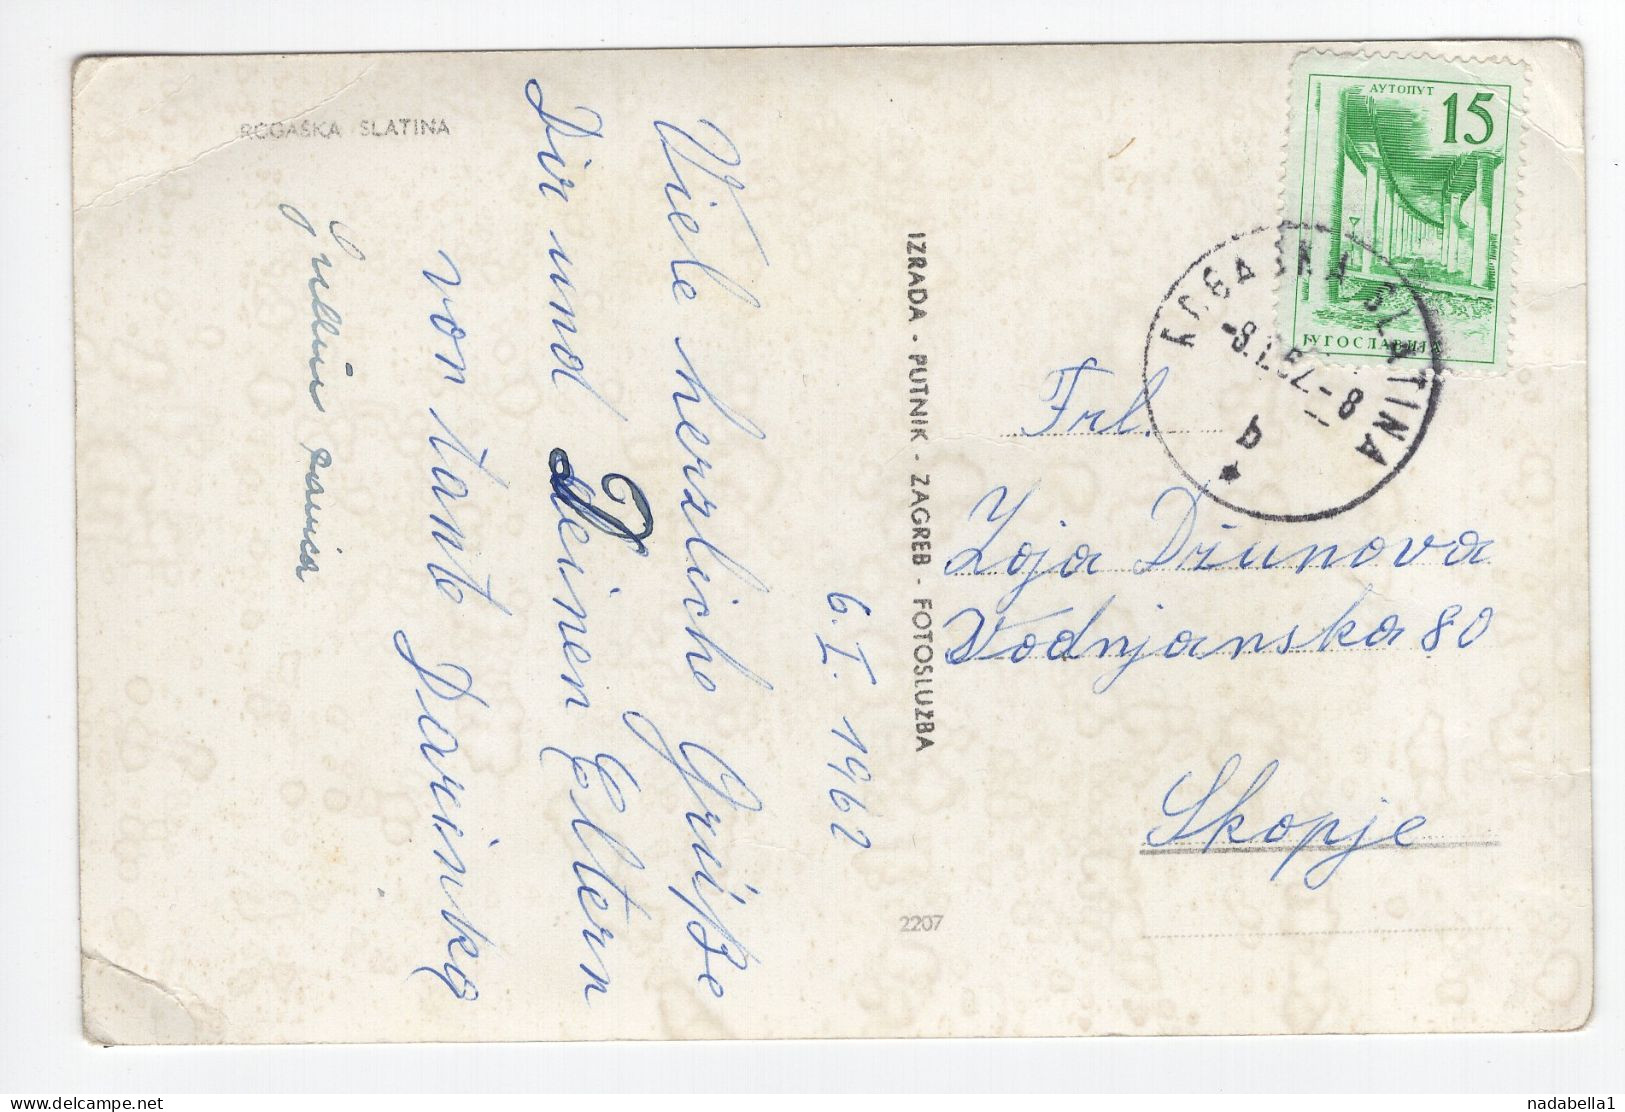 ROGAŠKA SLATINA
6. I. 1962
Viele herzliche Grüße
Dir und Deinen Eltern
von tante Darinka
IZRADA - PUTNIK - ZAGREB - FOTOSLUŽBA
2207
АУТОПУТ
15
ЈУГОСЛАВИЈА
ROGAŠKA SLATINA
-8.1.62.-8
b
Frl.
Zoja Džunova
Vodnjanska 80
Skopje
nadabella1